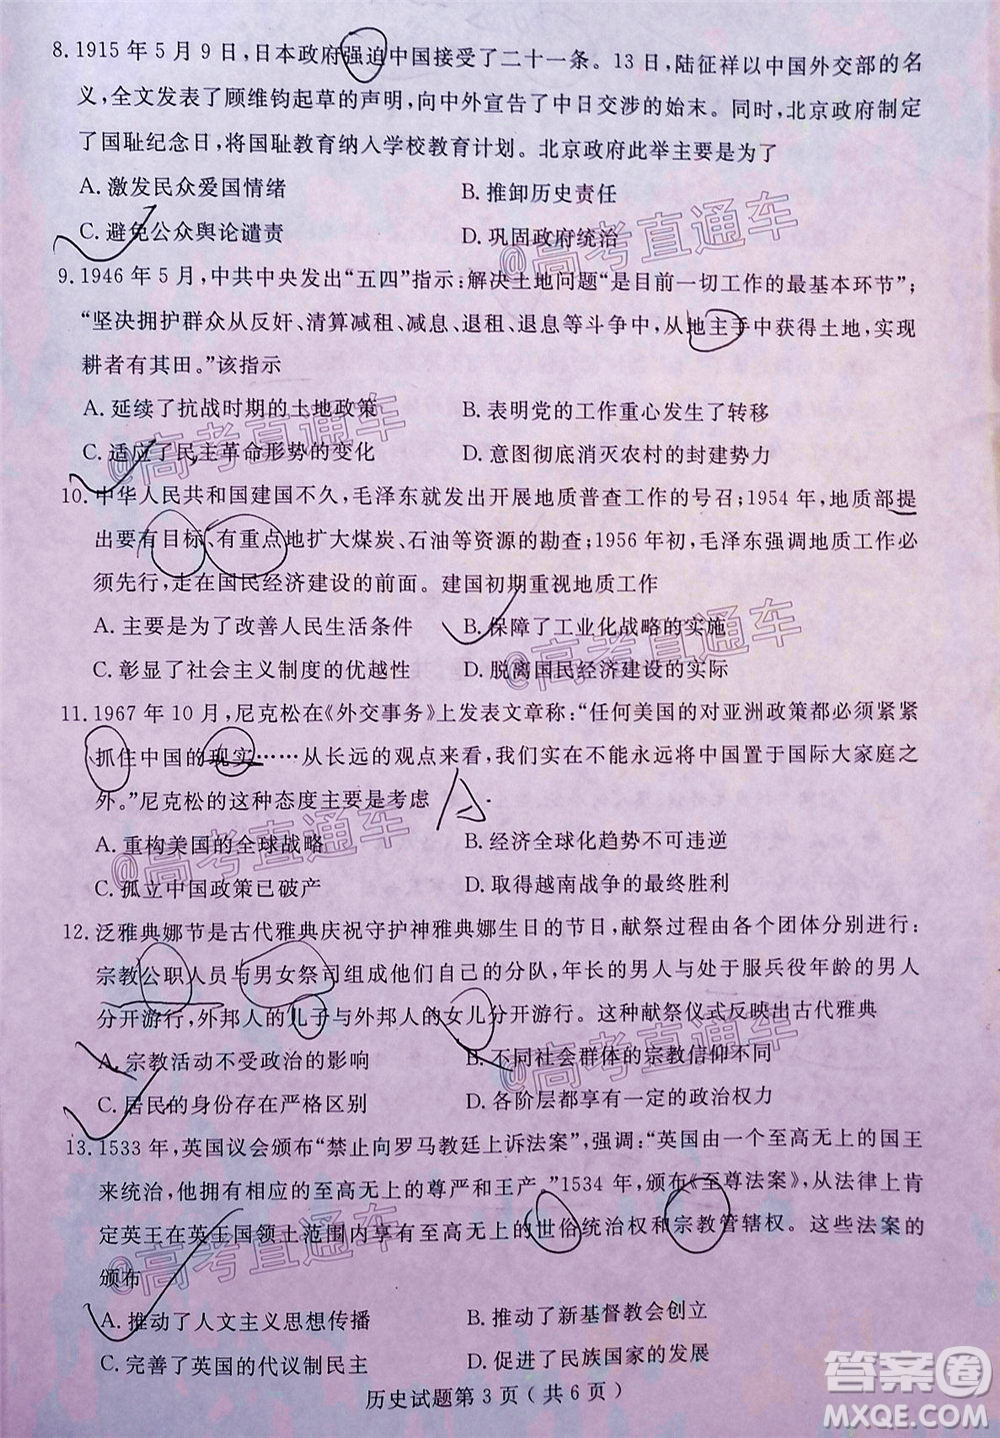 8. 1915 年 5 月 9 日，日本政府强迫中国接受了二十一条。13 日，陆征祥以中国外交部的名
义，全文发表了顾维钧起草的声明，向中外宣告了中日交涉的始末。同时，北京政府制定
了国耻纪念日，将国耻教育纳入学校教育计划。北京政府此举主要是为了
A. 激发民众爱国情绪 B. 推卸历史责任
C. 避免公众舆论谴责 D. 巩固政府统治
@高考直通车
9. 1946 年 5 月，中共中央发出“五四”指示：解决土地问题“是目前一切工作的最基本环节”；
“坚决拥护群众从反奸、清算减租、减息、退租、退息等斗争中，从地主手中获得土地，实现
耕者有其田。”该指示
A. 延续了抗战时期的土地政策 B. 表明党的工作重心发生了转移
C. 适应了民主革命形势的变化 D. 意图彻底消灭农村的封建势力
@高考直通车
10. 中华人民共和国建国不久，毛泽东就发出开展地质普查工作的号召；1954 年，地质部提
出要有目标、有重点地扩大煤炭、石油等资源的勘查；1956 年初，毛泽东强调地质工作必
须先行，走在国民经济建设的前面。建国初期重视地质工作
A. 主要是为了改善人民生活条件 B. 保障了工业化战略的实施
C. 彰显了社会主义制度的优越性 D. 脱离国民经济建设的实际
@高考直通车
11. 1967 年 10 月，尼克松在《外交事务》上发表文章称：“任何美国的对亚洲政策都必须紧紧
抓住中国的现实……从长远的观点来看，我们实在不能永远将中国置于国际大家庭之
外。”尼克松的这种态度主要是考虑
A. 重构美国的全球战略 B. 经济全球化趋势不可违逆
C. 孤立中国政策已破产 D. 取得越南战争的最终胜利
@高考直通车
12. 泛雅典娜节是古代雅典庆祝守护神雅典娜生日的节日，献祭过程由各个团体分别进行：
宗教公职人员与男女祭司组成他们自己的分队，年长的男人与处于服兵役年龄的男人
分开游行，外邦人的儿子与外邦人的女儿分开游行。这种献祭仪式反映出古代雅典
A. 宗教活动不受政治的影响 B. 不同社会群体的宗教信仰不同
C. 居民的身份存在严格区别 D. 各阶层都享有一定的政治权力
@高考直通车
13. 1533 年，英国议会颁布“禁止向罗马教廷上诉法案”，强调：“英国由一个至高无上的国王
来统治，他拥有相应的至高无上的尊严和王产。”1534 年，颁布《至尊法案》，从法律上肯
定英王在英王国领土范围内享有至高无上的世俗统治权和宗教管辖权。这些法案的
颁布
@高考直通车
A. 推动了人文主义思想传播 B. 推动了新基督教会创立
C. 完善了英国的代议制民主 D. 促进了民族国家的发展
历史试题第 3 页（共 6 页）
答案圈
MXQE.COM